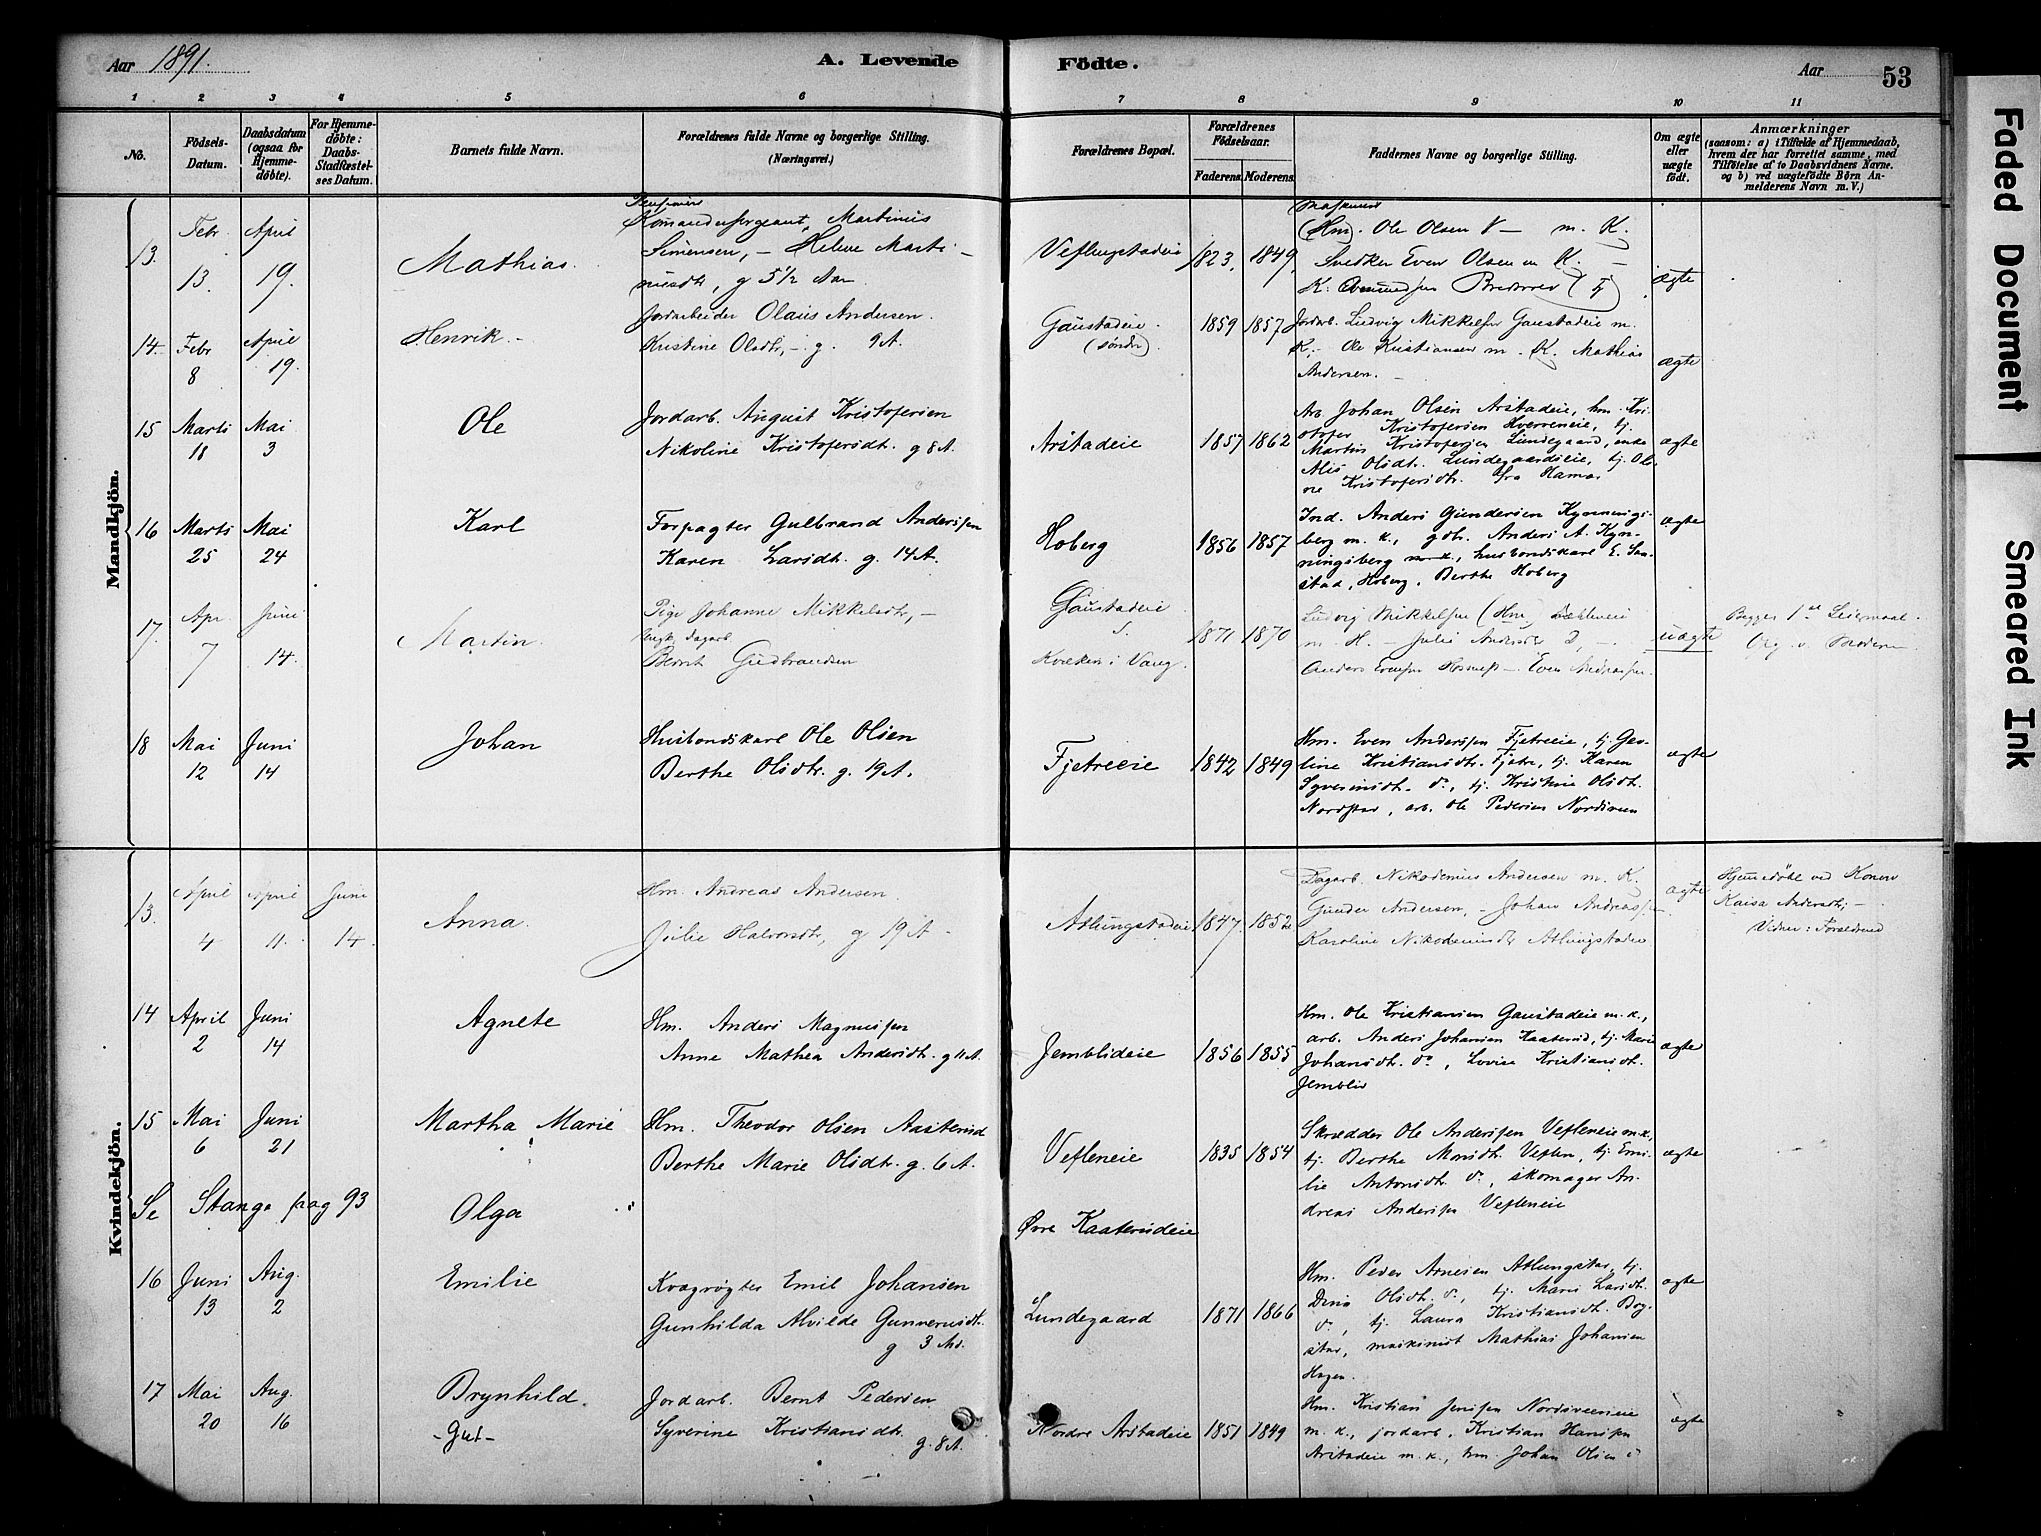 Aar 1891.
A. Levende Födte.
Aar 53
1 2 3 4 5 6 7 8 9 10 11
No.
Födsels-Datum.
Daabsdatum (ogsaa for Hjemme-döbte).
For Hjemme-döbte: Daabs-Stadfæstel-ses Datum.
Barnets fulde Navn.
Forældrenes fulde Navne og borgerlige Stilling.
(Næringsvei.)
Forældrenes Bopæl.
Forældrenes Födselsaar.
Faderens. Moderens.
Faddernes Navne og borgerlige Stilling.
Om ægte eller uægte födt.
Anmærkninger
(saasom: a) i Tilfælde af Hjemmedaab, hvem der har forrettet samme, med Tilföielse af to Daabsvidners Navne. og b) ved uægtefödte Börn An-melderens Navn m. V.)
Mandkjön.
13. Febr. 13. April 19.
Mathias.
Martinus
Simensen, – Helene Marti-
nusdtr, g 5½ Aar.
1823. 1849.
Ole Olsen V – m. K.
Even Olsen m K. –
ægte
14. Febr 8 April 19.
Henrik. –
Jordarbeider Olaus Andersen.
Kristine Olsdtr, – g. 9 A.
Gaustadeie.
(søndre).
1859 1857
Jordarb. Ludvig Mikkelsen Gaustadeie m.
K. – Ole Kristiansen m. K. Mathias
Andersen. –
ægte
15 Marts 18 Mai 3
Ole
Jordarb. August Kristofersen
Nikoline Kristofersdt. g 8 A.
Arstadeie
1857 1862
Arb. Johan Olsen Arstadeie, hm. Kri-
stofer Kristofersen Hverveneie, tj.
Martin Kristofersen Lundegaard, enke
Olsdt. Lundegaardseie, tj. Oli-
ne Kristofersdt. fra Hamar
ægte
16 Marts 25 Mai 24
Karl
Forpagter Gulbrand Anderssen
Karen Larsdt. g. 14 A.
Hoberg
1856 1857
Ind. Anders Gundersen Kynnings-
berg m. k., gdr. Anders A. Kyn-
ningsberg m. k., husbondskarl E. San-
stad, Hoberg, Berthe Hoberg
ægte
17. Apr. 7 Juni 14.
Martin.
Pige Johanne Mikkelsdtr, –
Ungk. dagarb.
Bernt Gudbrandsen
Gaustadeie
S.
Kvæken i Vang.
1871 1870
Ludvig Mikkelsen (Hm)
m. K. Julie
Anders Evensen – Even Andreassen.
uægte
Begges 1ste Leiermaal.
Opg. v. Moderen.
18 Mai 12 Juni 14
Johan
Husbondskarl Ole Olsen
Berthe Olsdtr. g. 19 A.
Fjetreeie
1842 1849
Hm. Even Anderssen Fjetreeie, tj. Geo-
line Kristiansdt. Fjetre, tj. Karen
Syversensdt. do, tj. Kristine Olsdt.
arb. Ole Pedersen Nordsveen
ægte
Kvindekjön.
13. April 4 April 11. Juni 14.
Anna
Hm. Andreas Andersen.
Julie Halvorsdtr, g 19 A. –
Atlungstadeie
1847. 1852
Dagarb. Nikodemus Andersen m. K.
Gunder Andersen, – Johan Andreassen
Karoline Nikodemusdtr Atlungstadeie
ægte
Hjemedöbt ved Konen
Kaisa Andersdtr; –
Vidner: Forældrene
14 April 2 Juni 14
Agnete
Hm. Anders Magnussen
Anne Mathea Andersdt. g 11 A.
Jemblideie
1856 1855
Hm. Ole Kristiansen Gaustadeie m. k.,
arb. Anders Johansen Kaaterud, tj. Marie
Johansdt. do, Lovise Kristiansdt.
Jemblid
ægte
15 Mai 6 Juni 21
Martha Marie
Hm. Theodor Olsen Aasterud
Berthe Marie Olsdt. g. 6 A.
Vefleneie
1835 1854
Skrædder Ole Anderssen Vefleneie m. k.,
tj. Berthe Monsdt. Veflen, tj. Emi-
lie Antonsdt. do, skomager An-
dreas Anderssen Vefleneie
ægte
Se Stange pag 93
Olga
Øvre Kaaterudeie
16 Juni 13 Aug. 2
Emilie
Kvægrøgter Emil Johansen
Gunhilda Alvilde Gunnerusdt.
g 3 Md.
Lundegaard
1871 1866
Hm. Peder Arnesen Atlungstad, tj.
Dina Olsdt. do, tj. Mari Larsdt.
do, tj. Laura Kristiansdt. Bog-
stad, maskinist Mathias Johansen
Hagen.
ægte
17 Mai 20 Aug. 16
Brynhild.
– Gut –
Jordarb. Bernt Pedersen
Syverine Kristiansdt.
g. 8 A.
Nordre Arstadeie
1851 1849
Hm. Kristian Jenssen Nordsveeneie
m. k., jordarb. Kristian Hanssen
Arstadeie m. k., hm. Johan Olsen i
ægte
Faded Document
Smeared Ink